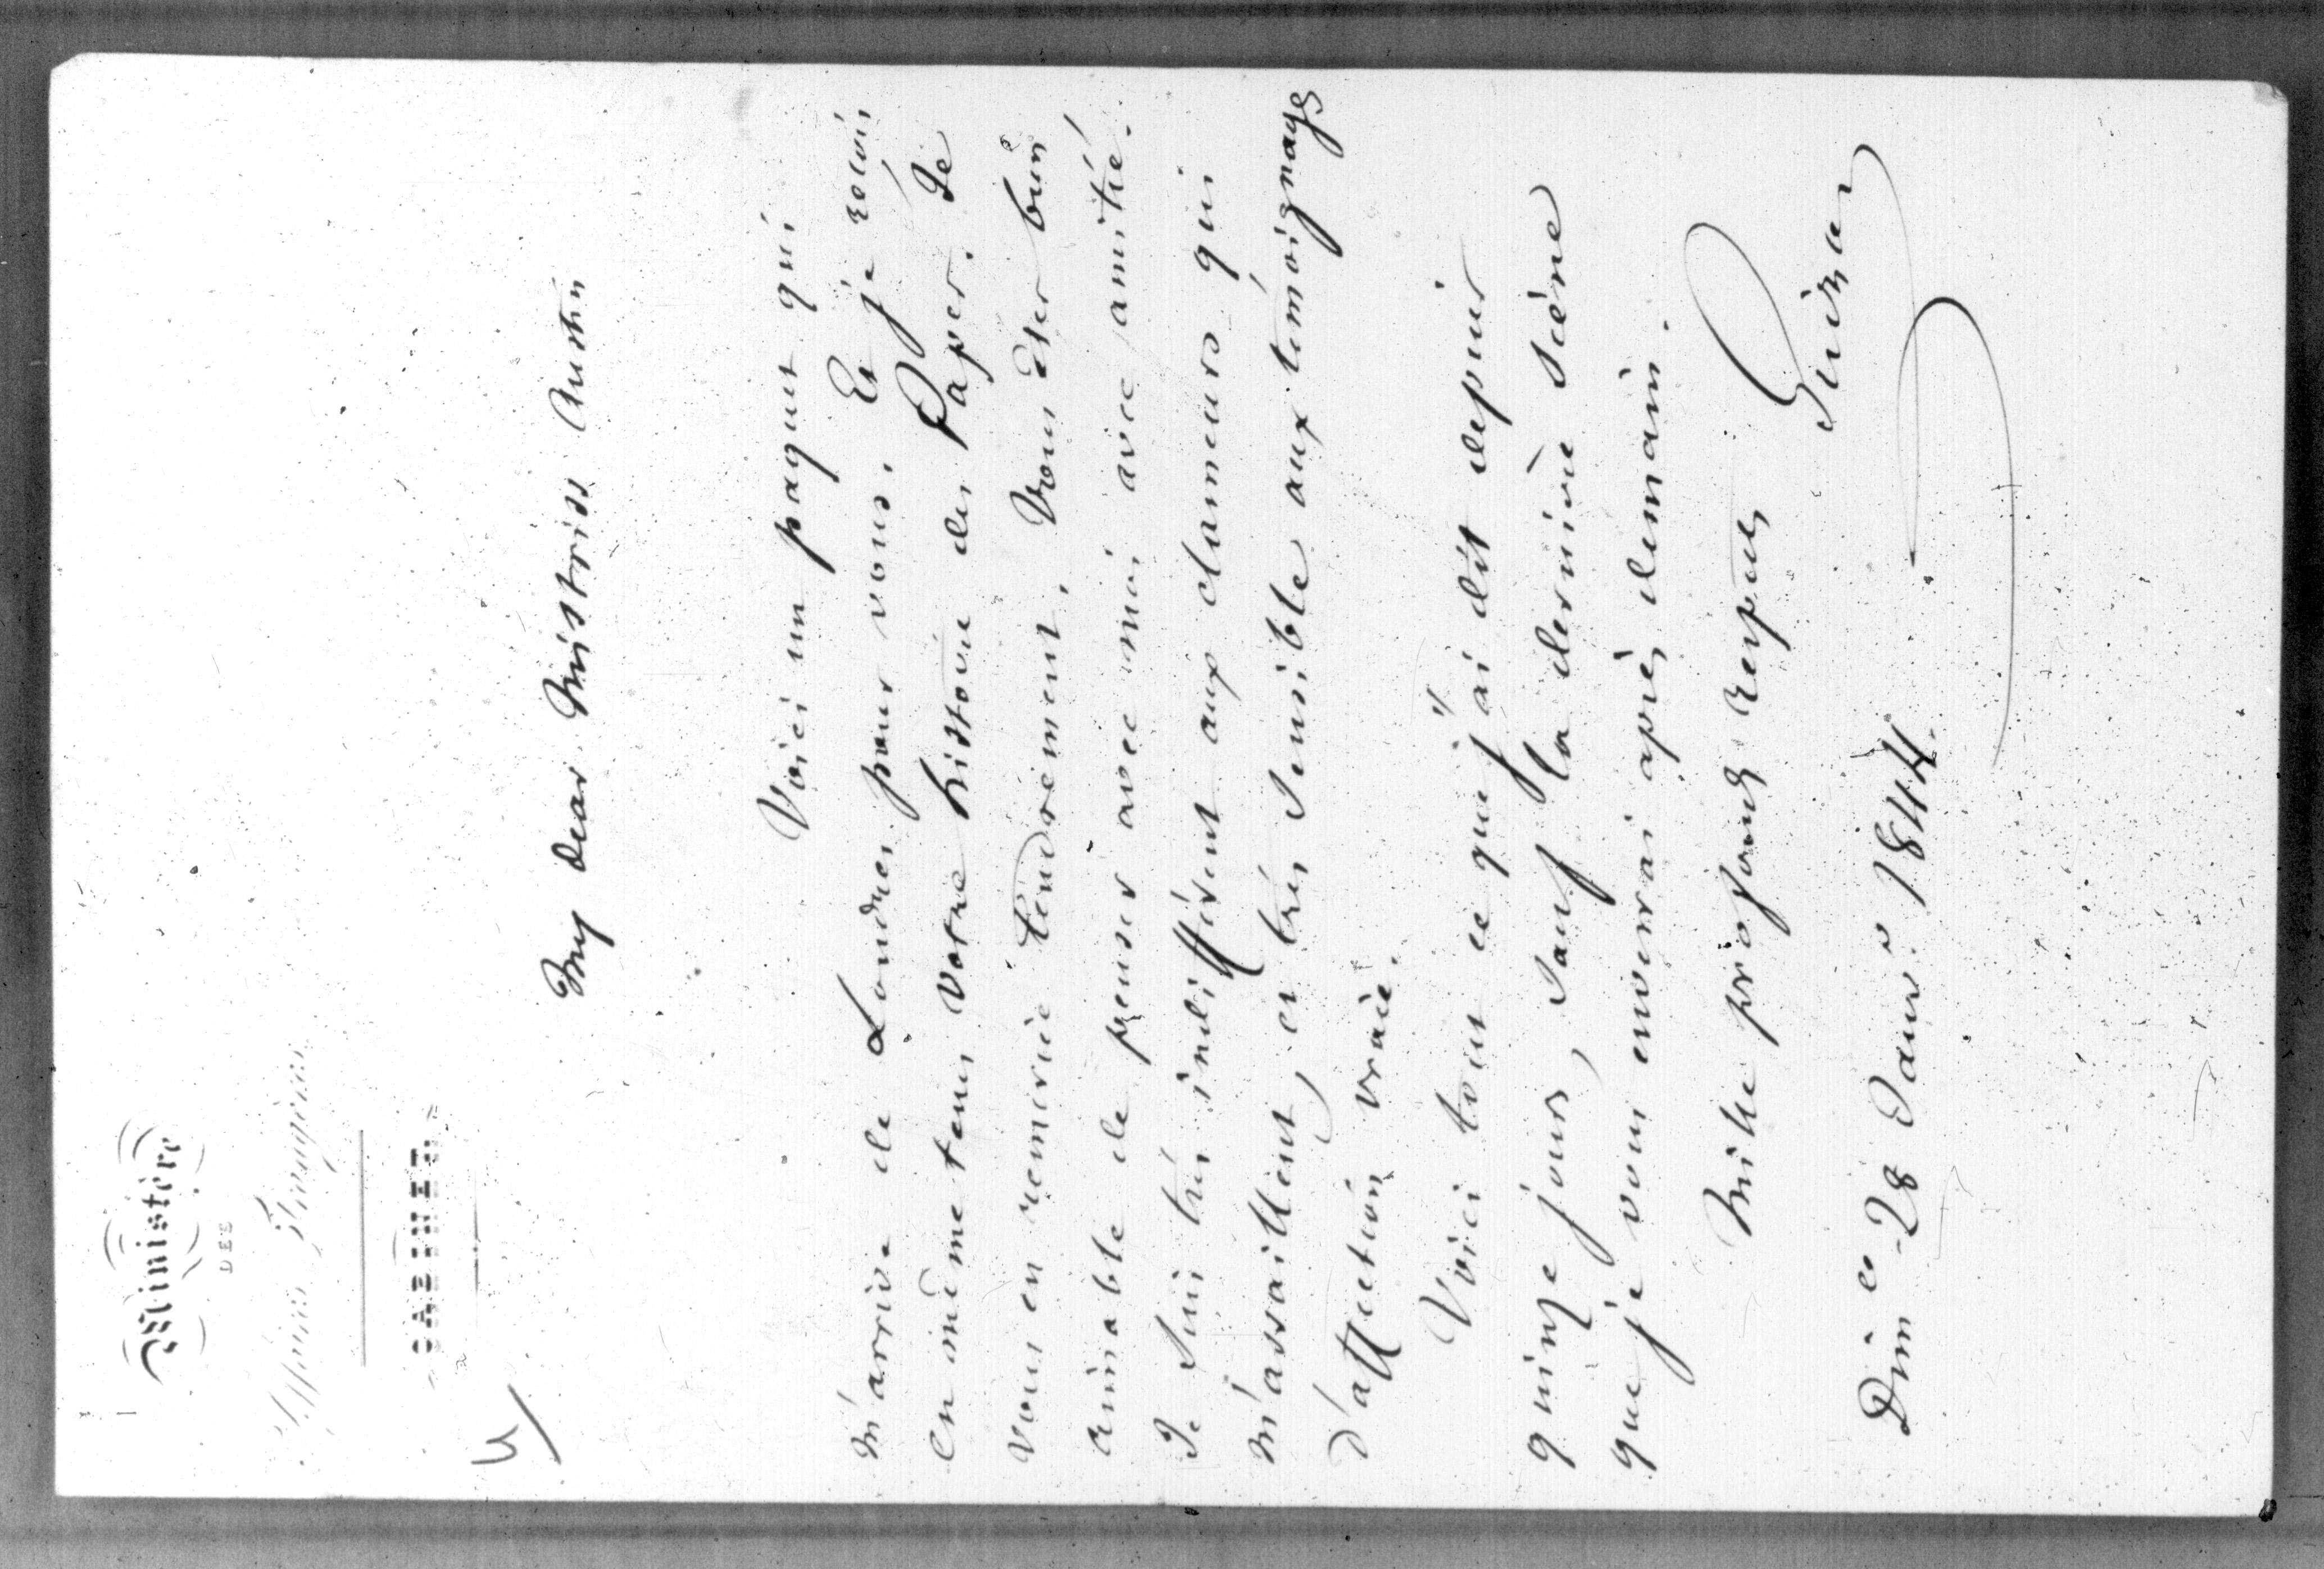 Ministère
DES
Affaires Etrangères
CABINET.
4/
My dear Mistriss Austin
Voici un paquet qui
m'arrive de Londres pour vous. Et je reçois
en même tems votre histoire des Papes. Je
vous en remercie tendrement. Vous êtes bien
aimable de penser avec moi avec amitié.
Je suis très indifférent aux clameurs qui
m'assaillent, et très sensible aux témoignages
d'affection vraie.
Voici tout ce que j'ai dit depuis
quinze jours, sauf la dernière scène
que je vous enverrai après demain.
Mille profonds respects
Guizot
Dim.e 28 Janv.r 1844.